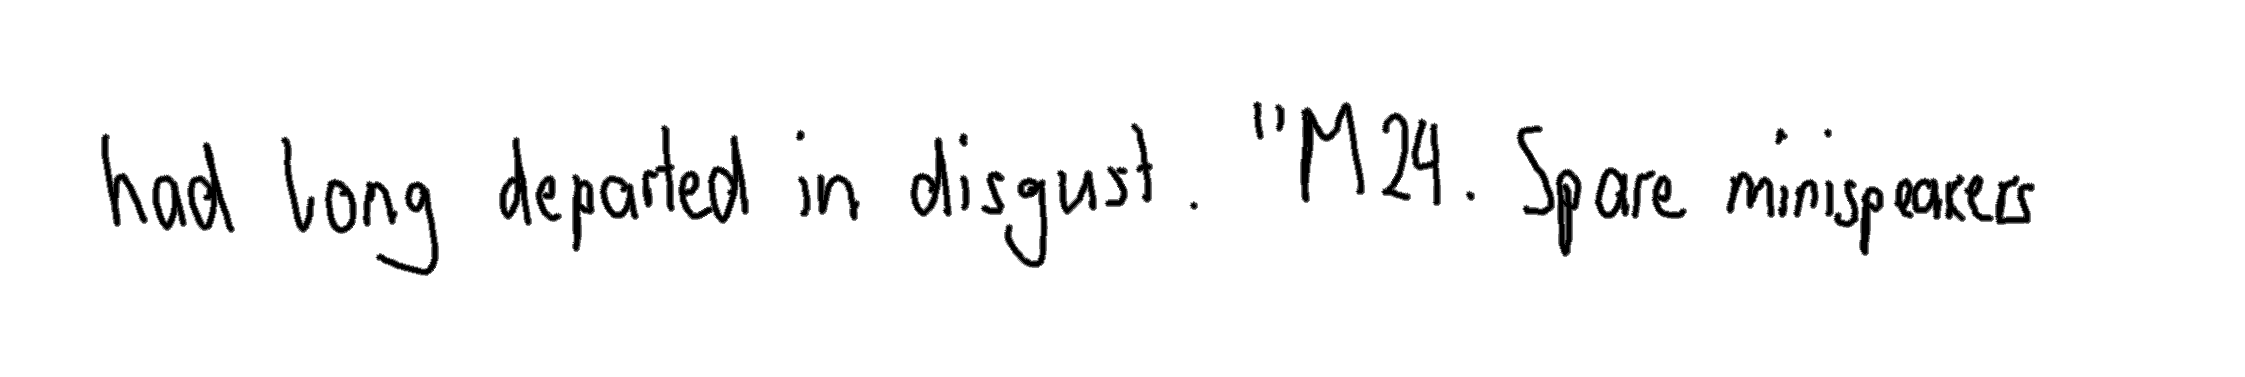 had long departed in disgust. "M24. Spare minispeakers